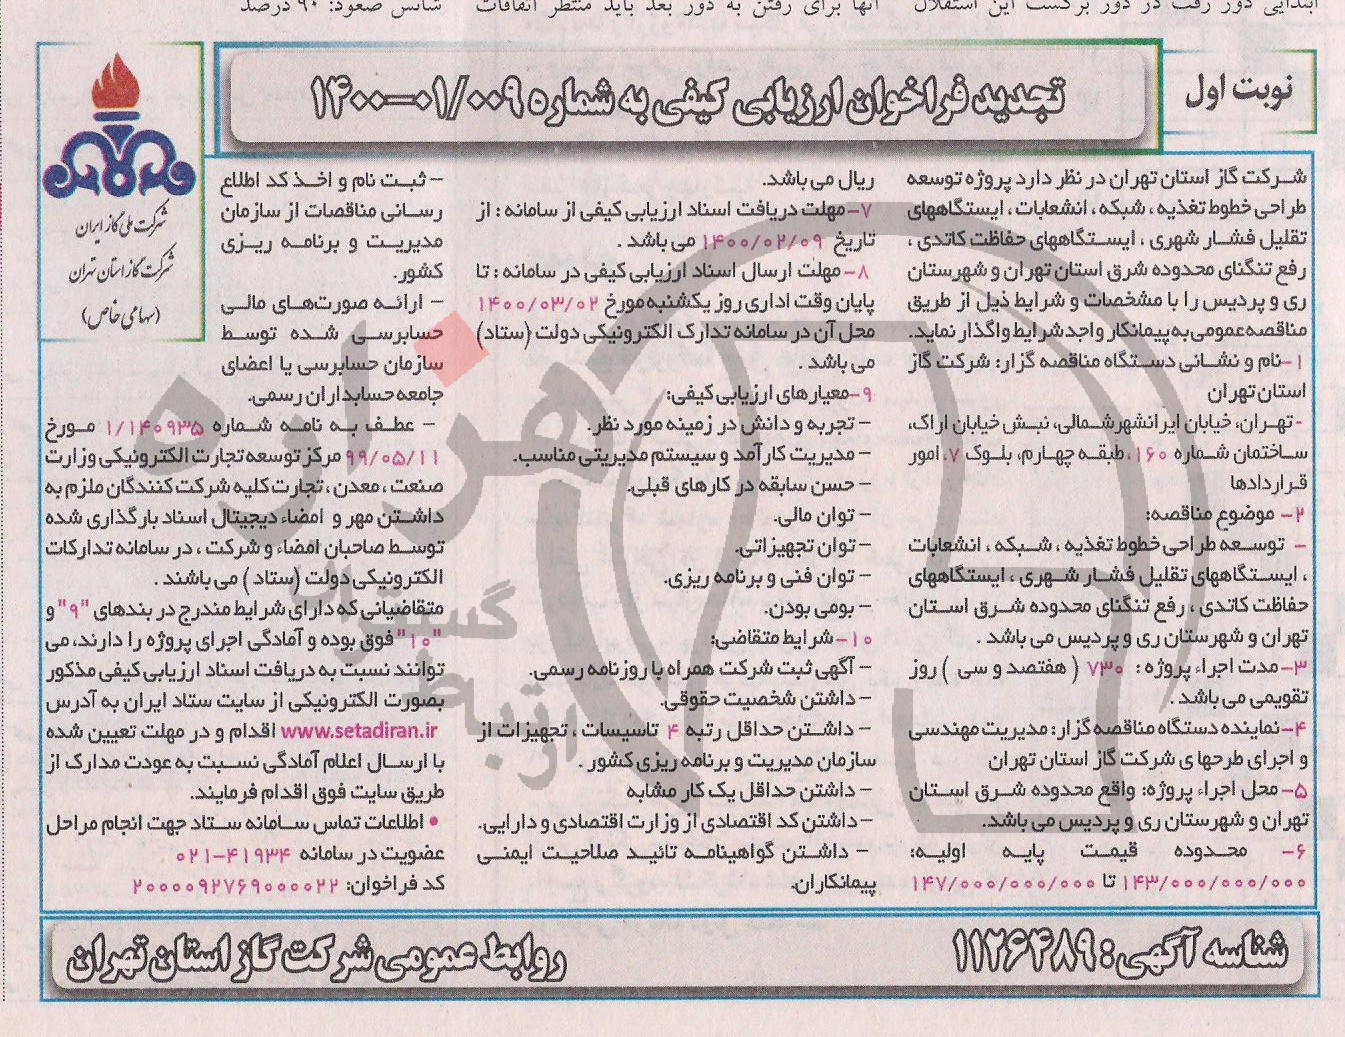 ابتدایی دور رفت در دور برگشت این استقلال
آنها برای رفتن به دور بعد باید منتظر اتفاقات
شانس صعود: ۹۰ درصد
نوبت اول
تجدید فراخوان ارزیابی کیفی به شماره ۰۰۹/۰۱-۱۴۰۰
شرکت ملی گاز ایران
شرکت گاز استان تهران
(سهامی خاص)
شرکت گاز استان تهران در نظر دارد پروژه توسعه
طراحی خطوط تغذیه ، شبکه ، انشعابات ، ایستگاههای
تقلیل فشار شهری ، ایستگاههای حفاظت کاتدی ،
رفع تنگنای محدوده شرق استان تهران و شهرستان
ری و پردیس را با مشخصات و شرایط ذیل از طریق
مناقصه عمومی به پیمانکار واجد شرایط واگذار نماید.
۱-نام و نشانی دستگاه مناقصه گزار: شرکت گاز
استان تهران
-تهران، خیابان ایرانشهر شمالی، نبش خیابان اراک،
ساختمان شماره ۱۶۰، طبقه چهارم، بلوک ۷، امور
قراردادها
۲- موضوع مناقصه:
- توسعه طراحی خطوط تغذیه ، شبکه ، انشعابات
، ایستگاههای تقلیل فشار شهری ، ایستگاههای
حفاظت کاتدی ، رفع تنگنای محدوده شرق استان
تهران و شهرستان ری و پردیس می باشد .
۳-مدت اجراء پروژه : ۷۳۰ ( هفتصد و سی ) روز
تقویمی می باشد .
۴-نماینده دستگاه مناقصه گزار: مدیریت مهندسی
و اجرای طرحهای شرکت گاز استان تهران
۵- محل اجراء پروژه: واقع محدوده شرق استان
تهران و شهرستان ری و پردیس می باشد.
۶- محدوده قیمت پایه اولیه:
۱۴۳/۰۰۰/۰۰۰/۰۰۰ تا ۱۴۷/۰۰۰/۰۰۰/۰۰۰
ریال می باشد.
۷-مهلت دریافت اسناد ارزیابی کیفی از سامانه : از
تاریخ ۱۴۰۰/۰۲/۰۹ می باشد .
۸-مهلت ارسال اسناد ارزیابی کیفی در سامانه : تا
پایان وقت اداری روز یکشنبه مورخ ۱۴۰۰/۰۳/۰۲
محل آن در سامانه تدارک الکترونیکی دولت (ستاد)
می باشد .
۹-معیارهای ارزیابی کیفی:
- تجربه و دانش در زمینه مورد نظر.
- مدیریت کارآمد و سیستم مدیریتی مناسب.
- حسن سابقه در کارهای قبلی.
- توان مالی.
- توان تجهیزاتی.
- توان فنی و برنامه ریزی.
- بومی بودن.
۱۰-شرایط متقاضی:
- آگهی ثبت شرکت همراه با روزنامه رسمی.
- داشتن شخصیت حقوقی.
- داشتن حداقل رتبه ۴ تاسیسات ، تجهیزات از
سازمان مدیریت و برنامه ریزی کشور .
- داشتن حداقل یک کار مشابه
- داشتن کد اقتصادی از وزارت اقتصادی و دارایی.
- داشتن گواهینامه تائید صلاحیت ایمنی
پیمانکاران.
- ثبت نام و اخذ کد اطلاع
رسانی مناقصات از سازمان
مدیریت و برنامه ریزی
کشور.
- ارائه صورت‌های مالی
حسابرسی شده توسط
سازمان حسابرسی یا اعضای
جامعه حسابداران رسمی.
- عطف به نامه شماره ۱/۱۴۰۹۳۵ مورخ
۹۹/۰۵/۱۱ مرکز توسعه تجارت الکترونیکی وزارت
صنعت ، معدن ، تجارت کلیه شرکت کنندگان ملزم به
داشتن مهر و امضاء دیجیتال اسناد بارگذاری شده
توسط صاحبان امضاء و شرکت ، در سامانه تدارکات
الکترونیکی دولت (ستاد) می باشند .
متقاضیانی که دارای شرایط مندرج در بندهای "۹" و
"۱۰" فوق بوده و آمادگی اجرای پروژه را دارند، می
توانند نسبت به دریافت اسناد ارزیابی کیفی مذکور
بصورت الکترونیکی از سایت ستاد ایران به آدرس
www.setadiran.ir اقدام و در مهلت تعیین شده
با ارسال اعلام آمادگی نسبت به عودت مدارک از
طریق سایت فوق اقدام فرمایند.
• اطلاعات تماس سامانه ستاد جهت انجام مراحل
عضویت در سامانه ۴۱۹۳۴-۰۲۱
کد فراخوان: ۲۰۰۰۰۹۲۷۶۹۰۰۰۰۲۲
هزاره
گستران
ارتباط
شناسه آگهی: ۱۱۲۶۴۸۹
روابط عمومی شرکت گاز استان تهران